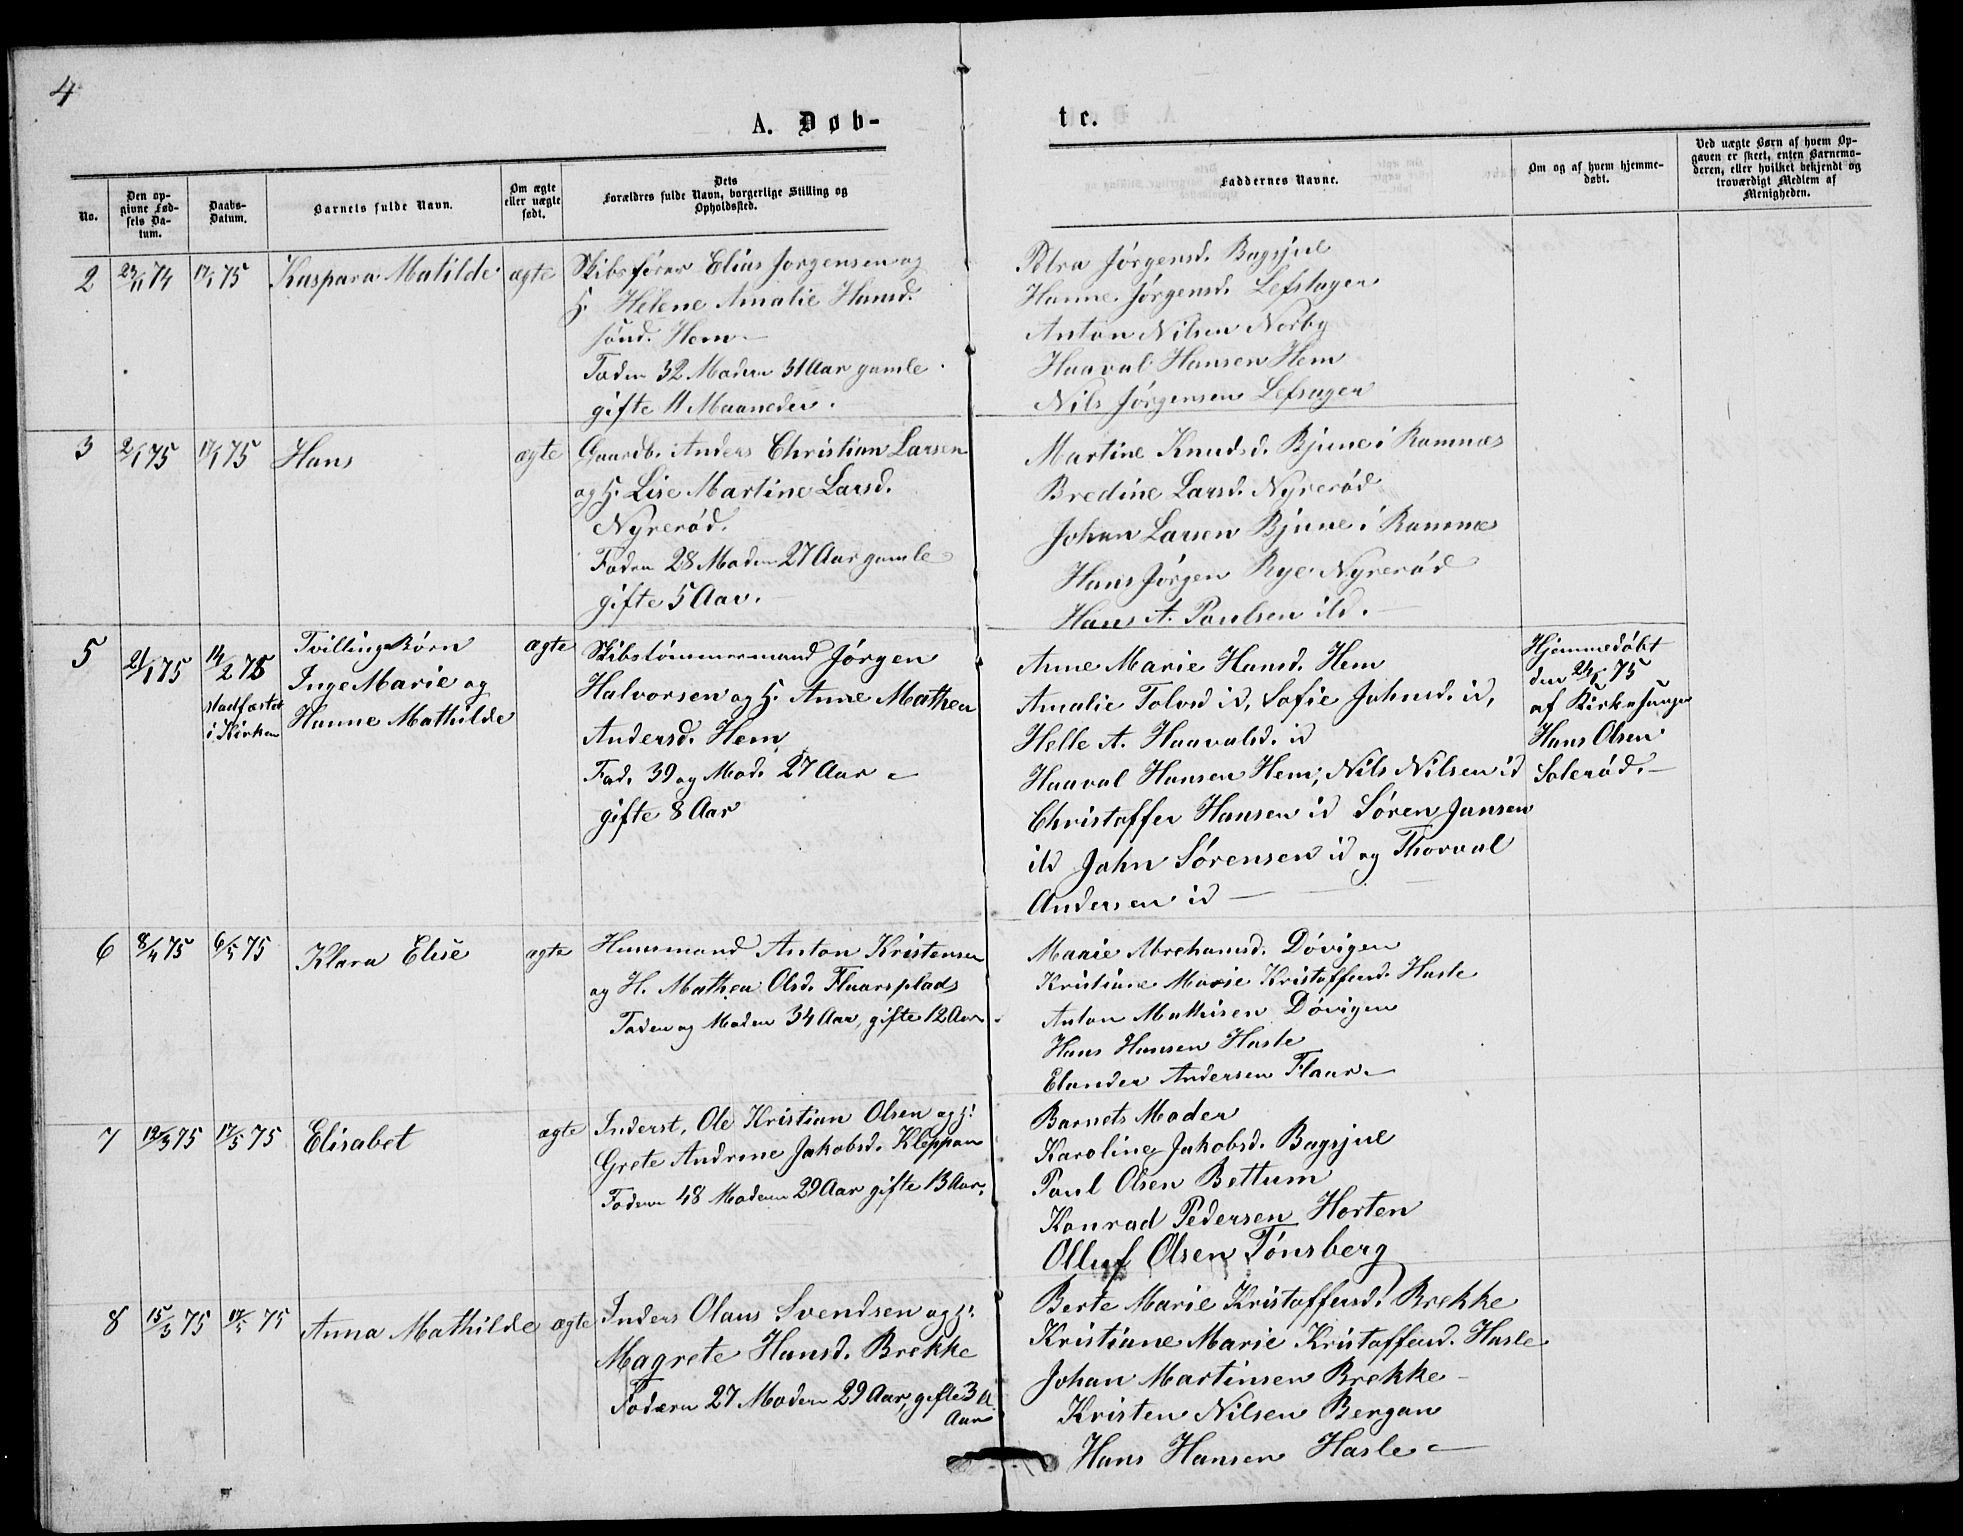 4
A. Døb-
te.
No.
Den op-
givne Fød-
sels Da-
tum.
Daabs-
Datum.
Barnets fulde Navn.
Om ægte
eller uægte
født.
Dets
Forældres fulde Navn, borgerlige Stilling og
Opholdssted.
Faddernes Navne.
Om og af hvem hjemme-
døbt.
Ved uægte Børn af hvem Op-
gaven er skeet, enten Barnemo-
deren, eller hvilket bekjendt og
troværdigt Medlem af
Menigheden.
2
29/11 74
17/1 75
Kaspara Matilde
ægte
Skibsfører Elias Jørgensen og
H. Helene Amalie Hansd.
sønd. Hem
Faden 32 Moden 31 Aar gamle
gifte 11 Maaneder.
Petra Jørgensd. Bagsjul
Hanne Jørgensd. Lefsager
Anton Nilsen Norby
Haaval Hansen Hem
Nils Jørgensen Lefsager
3
2/1 75
17/1 75
Hans
ægte
Gaardb. Anders Christian Larsen
og H. Lise Martine Larsd.
Nyrerød.
Faden 28 Moden 27 Aar gamle
gifte 5 Aar.
Martine Knudsd. Bjune i Ramnæs
Bredine Larsd. Nyrerød
Johan Larsen Bjune i Ramnæs
Hans Jørgen Rye Nyrerød
Hans A. Paulsen ild.
5
21/1 75
14/2 75
stadfæstet
i Kirken
TvillingBørn
Inge Marie og
Hanne Mathilde
ægte
Skibstømmermand Jørgen
Halvorsen og H. Anne Mathea
Andersd. Hem
Fad. 39 og Mod. 27 Aar
gifte 8 Aar
Anne Marie Hansd. Hem
Amalie Tolvsd id, Sofie Johnsd. id,
Helle A. Haavalsd. id
Haaval Hansen Hem, Nils Nilsen id
Christoffer Hansen id Søren Jansen
ild John Sørensen id og Thorval
Andersen id
Hjemmedøbt
den 24/1 75
af Kirkesanger
Hans Olsen
Solerød.
6
8/4 75
6/5 75
Klara Elise
ægte
Husmand Anton Kristensen
og H. Mathea Olsd. Flaarsplads
Faden og Moden 34 Aar, gifte 12 Aar
Marie Abrehamsd. Døvigen
Kristiane Marie Kristoffersd. Hasle
Anton Mathisen Døvigen
Hans Hansen Hasle
Elander Andersen Flaar
7
19/3 75
17/5 75
Elisabet
ægte
Inderst, Ole Kristian Olsen og H.
Grete Andrine Jakobsd. Kleppan
Faderen 48 Moderen 29 Aar gifte 13 Aar.
Barnets Moder
Karoline Jakobsd. Bagsjul
Paul Olsen Bettum
Konrad Pedersen Horten
Olluf Olsen Tønsberg
8
15/3 75
17/5 75
Anna Mathilde
ægte
Inders Olaus Svendsen og H.
Magrete Hansd. Brekke
Faderen 27 Moden 29 Aar, gifte 3
Aar
Berte Marie Kristoffersd. Brekke
Kristiane Marie Kristoffersd. Hasle
Johan Martinsen Brekke
Kristen Nilsen Bergan
Hans Hansen Hasle